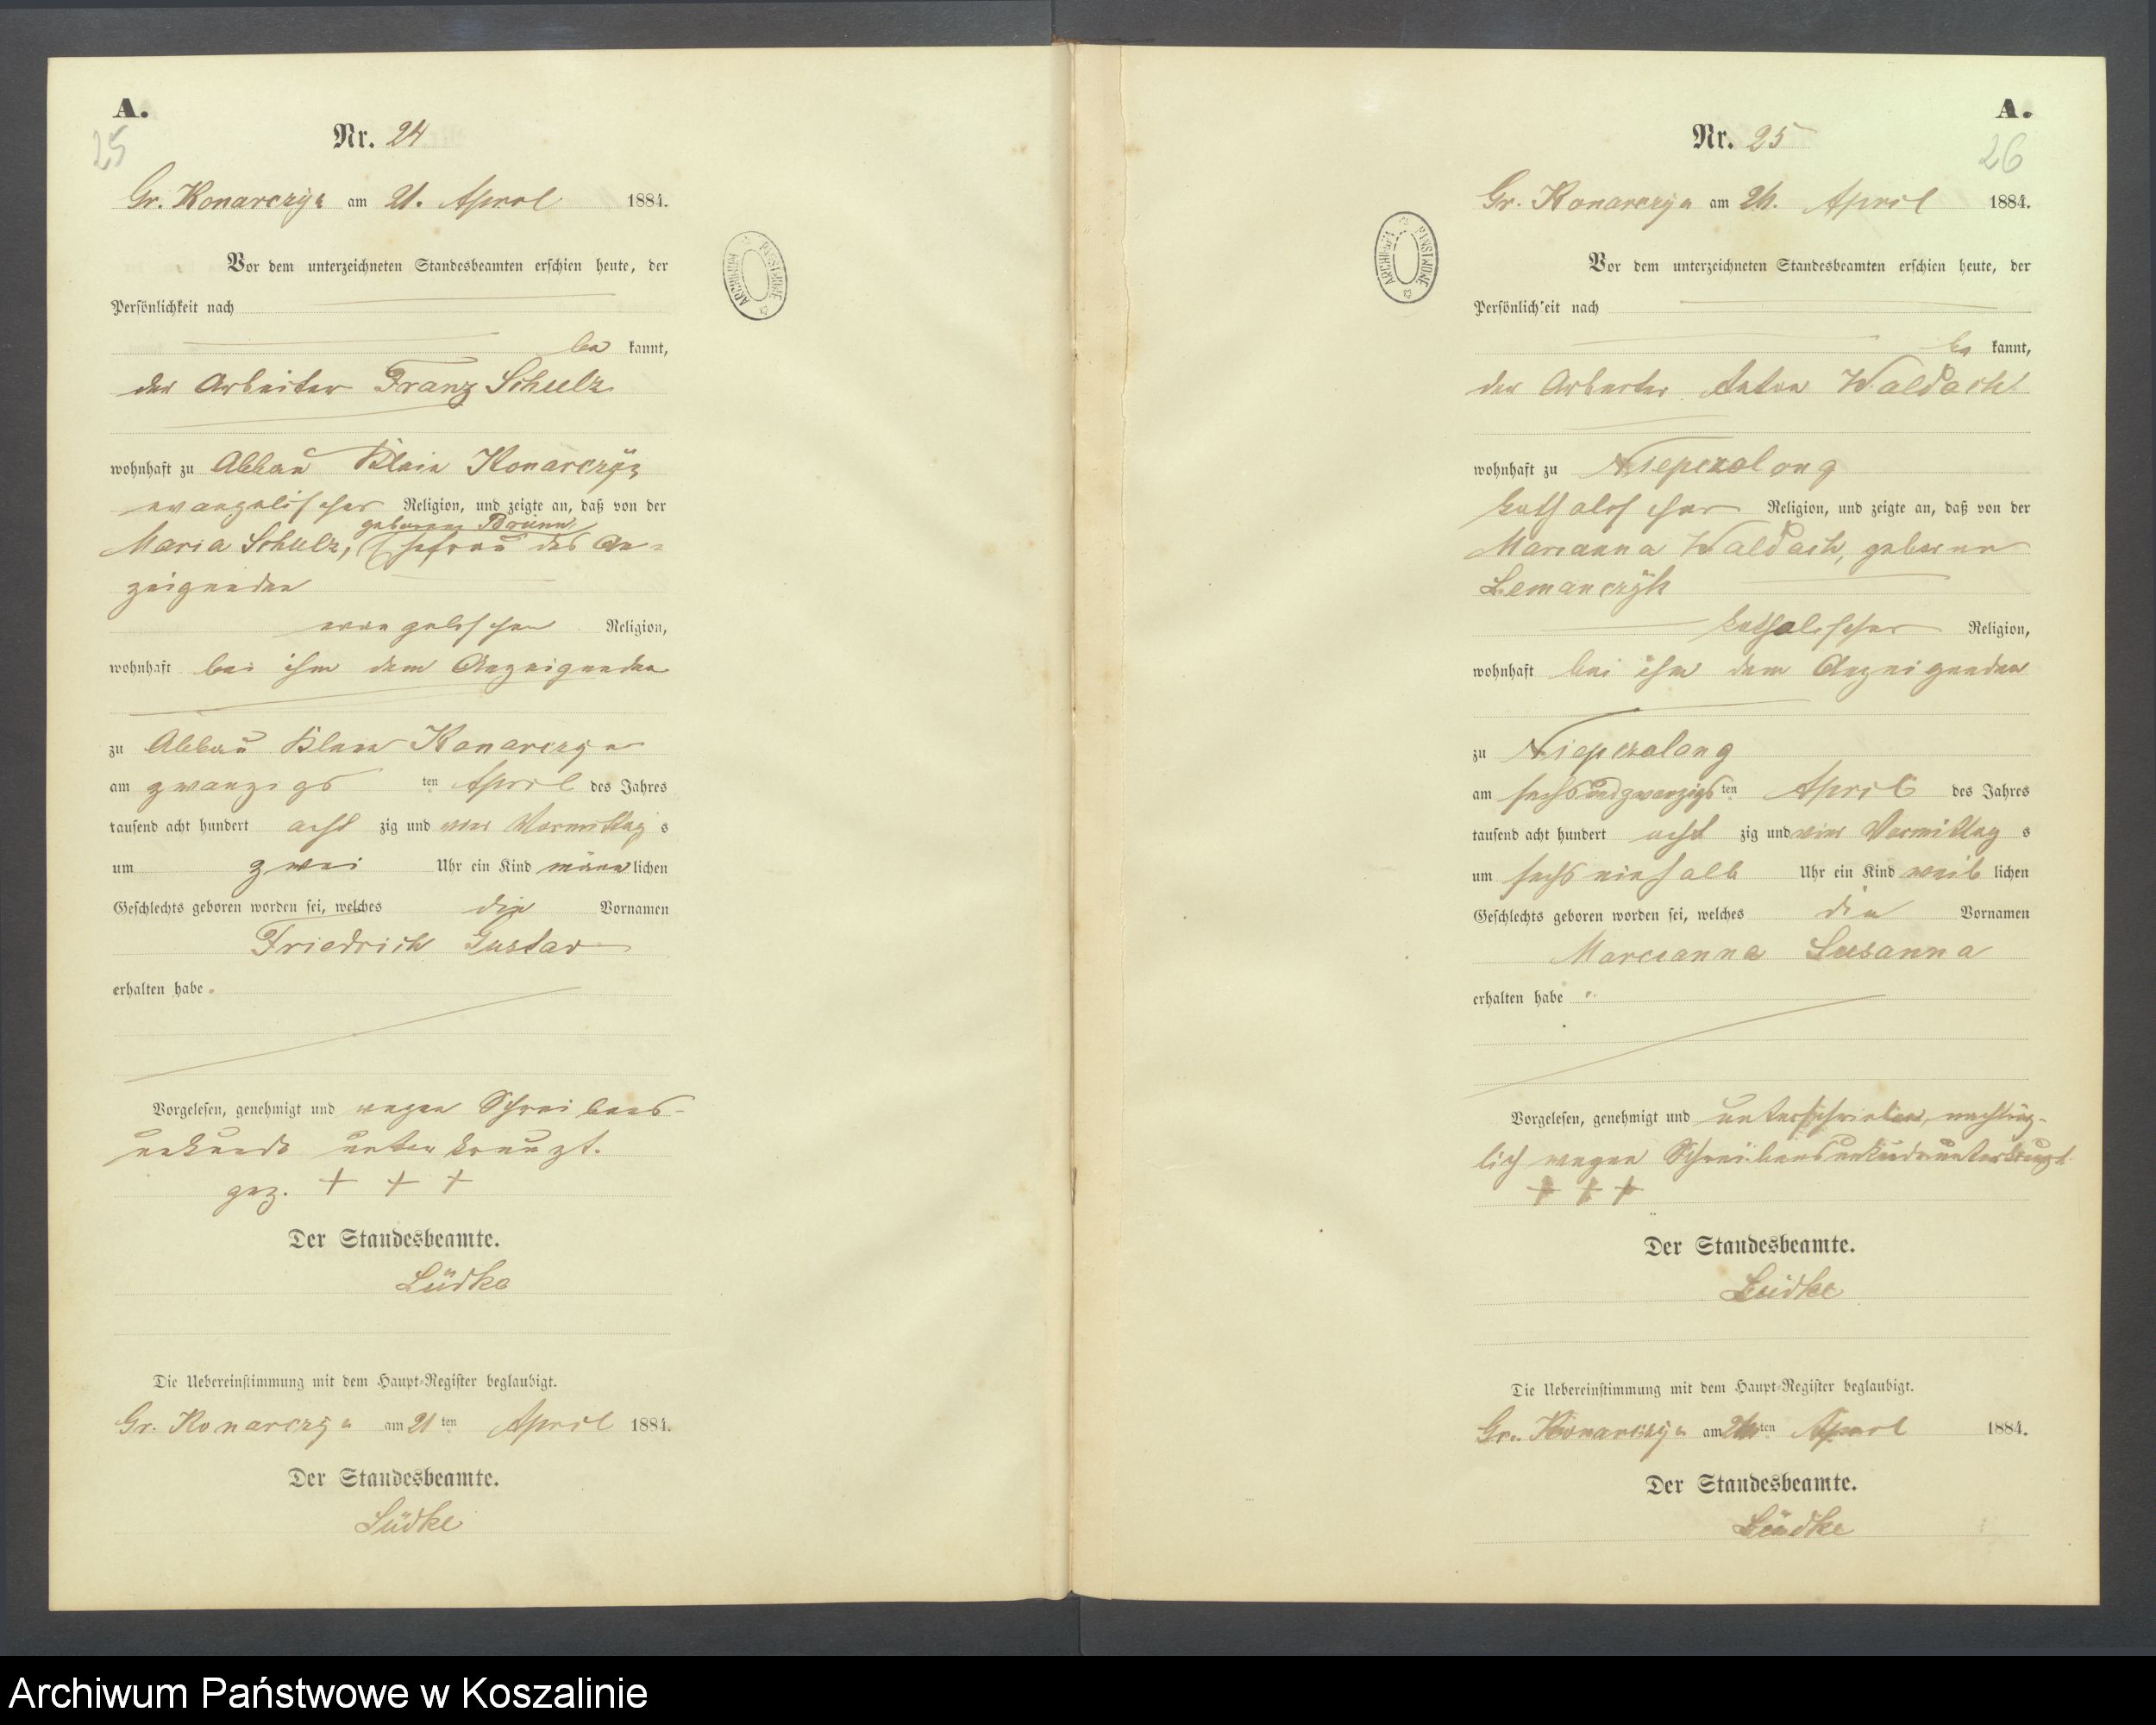 A.
25
Nr. 24
Gr. Konarczyn am 21. April 1884.
Vor dem unterzeichneten Standesbeamten erschien heute, der
Persönlichkeit nach
be kannt,
der Arbeiter Franz Schulz
wohnhaft zu Abbau Klein Konarczyn
evangelischer Religion, und zeigte an, daß von der
geborene Brunn,
Maria Schulz, Ehefrau des An-
zeigenden
evangelischer Religion,
wohnhaft bei ihm dem Anzeigenden
zu Abbau Klein Konarczyn
am zwanzigs ten April des Jahres
tausend acht hundert acht zig und vier Vormittag s
um zwei Uhr ein Kind männ lichen
Geschlechts geboren worden sei, welches die Vornamen
Friedrich Gustav
erhalten habe.
Vorgelesen, genehmigt und wegen Schreibens-
unkunde unterkreuzt.
gez. + + +
Der Standesbeamte.
Lüdke
Die Uebereinstimmung mit dem Haupt-Register beglaubigt.
Gr. Konarczyn am 21 ten April 1884.
Der Standesbeamte.
Lüdke
A.
26
Nr. 25
Gr. Konarczyn am April 1884.
ARCHIWUM PAŃSTWOWE
Vor dem unterzeichneten Standesbeamten erschien heute, der
Persönlichkeit nach
be kannt,
der Arbeiter Anton Waldach
wohnhaft zu Niepczolong
katholischer Religion, und zeigte an, daß von der
Marianna Waldach, geborene
Lemanczyk
katholischer Religion,
wohnhaft bei ihm dem Anzeigenden
zu Niepczolong
am sechsundzwanzigs ten April des Jahres
tausend acht hundert acht zig und vier Vormittag s
um sechs einhalb Uhr ein Kind weib lichen
Geschlechts geboren worden sei, welches die Vornamen
Marianna Susanna
erhalten habe.
Vorgelesen, genehmigt und unterschrieben, nachträg-
lich wegen Schreibensunkunde unterkreuzt.
+ + +
Der Standesbeamte.
Lüdke
Die Uebereinstimmung mit dem Haupt-Register beglaubigt.
Gr. Konarczyn am ten April 1884.
Der Standesbeamte.
Lüdke
Archiwum Państwowe w Koszalinie